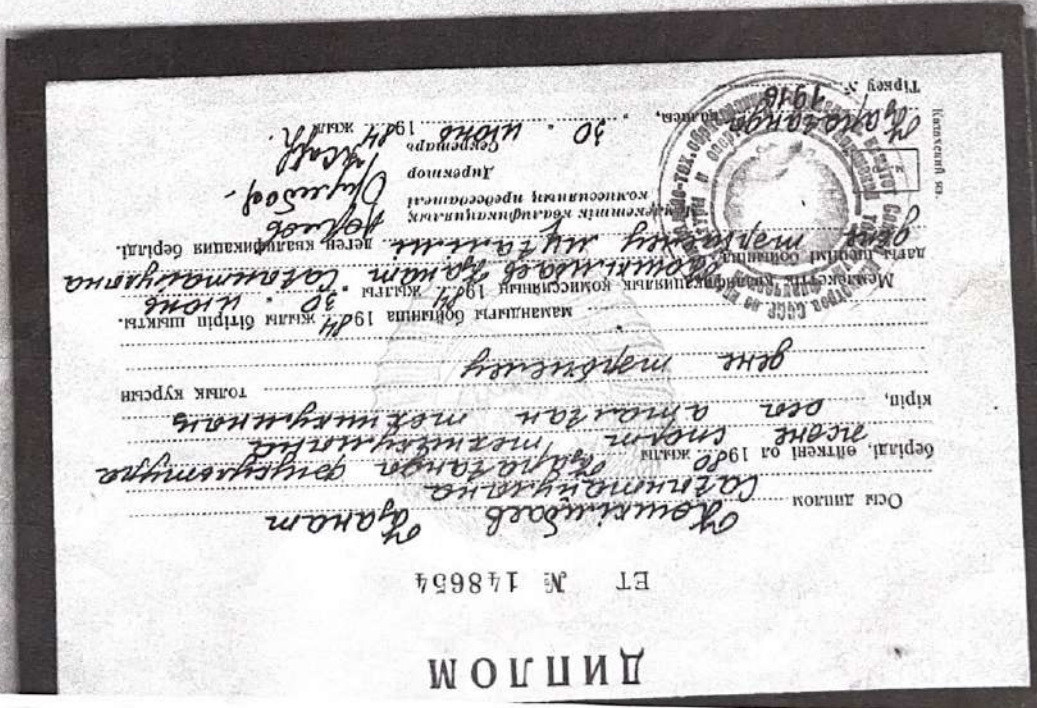 ДИПЛОМ
ЕТ № 148654
Осы диплом Көшкімбаев Қанат
Сағынтайұлына
берілді, өйткені ол 1980 жылы Қарағанды физкультура
және спорт техникумына
кіріп, осы аталған техникумның толық курсын
дене тәрбиелеу
мамандығы бойынша 1984 жылы бітіріп шықты.
Мемлекеттік квалификациялық комиссияның 1984 жылғы 30 июнь
дағы шешімі бойынша Қанат
дене тәрбиелеу мұғалімі деген квалификация берілді.
Мемлекеттік квалификациялық
комиссияның председателі
Директор
Секретарь
Қарағанды қаласы, 30 июнь 1984 жыл
Тіркеу № 1916
Казахский яз.